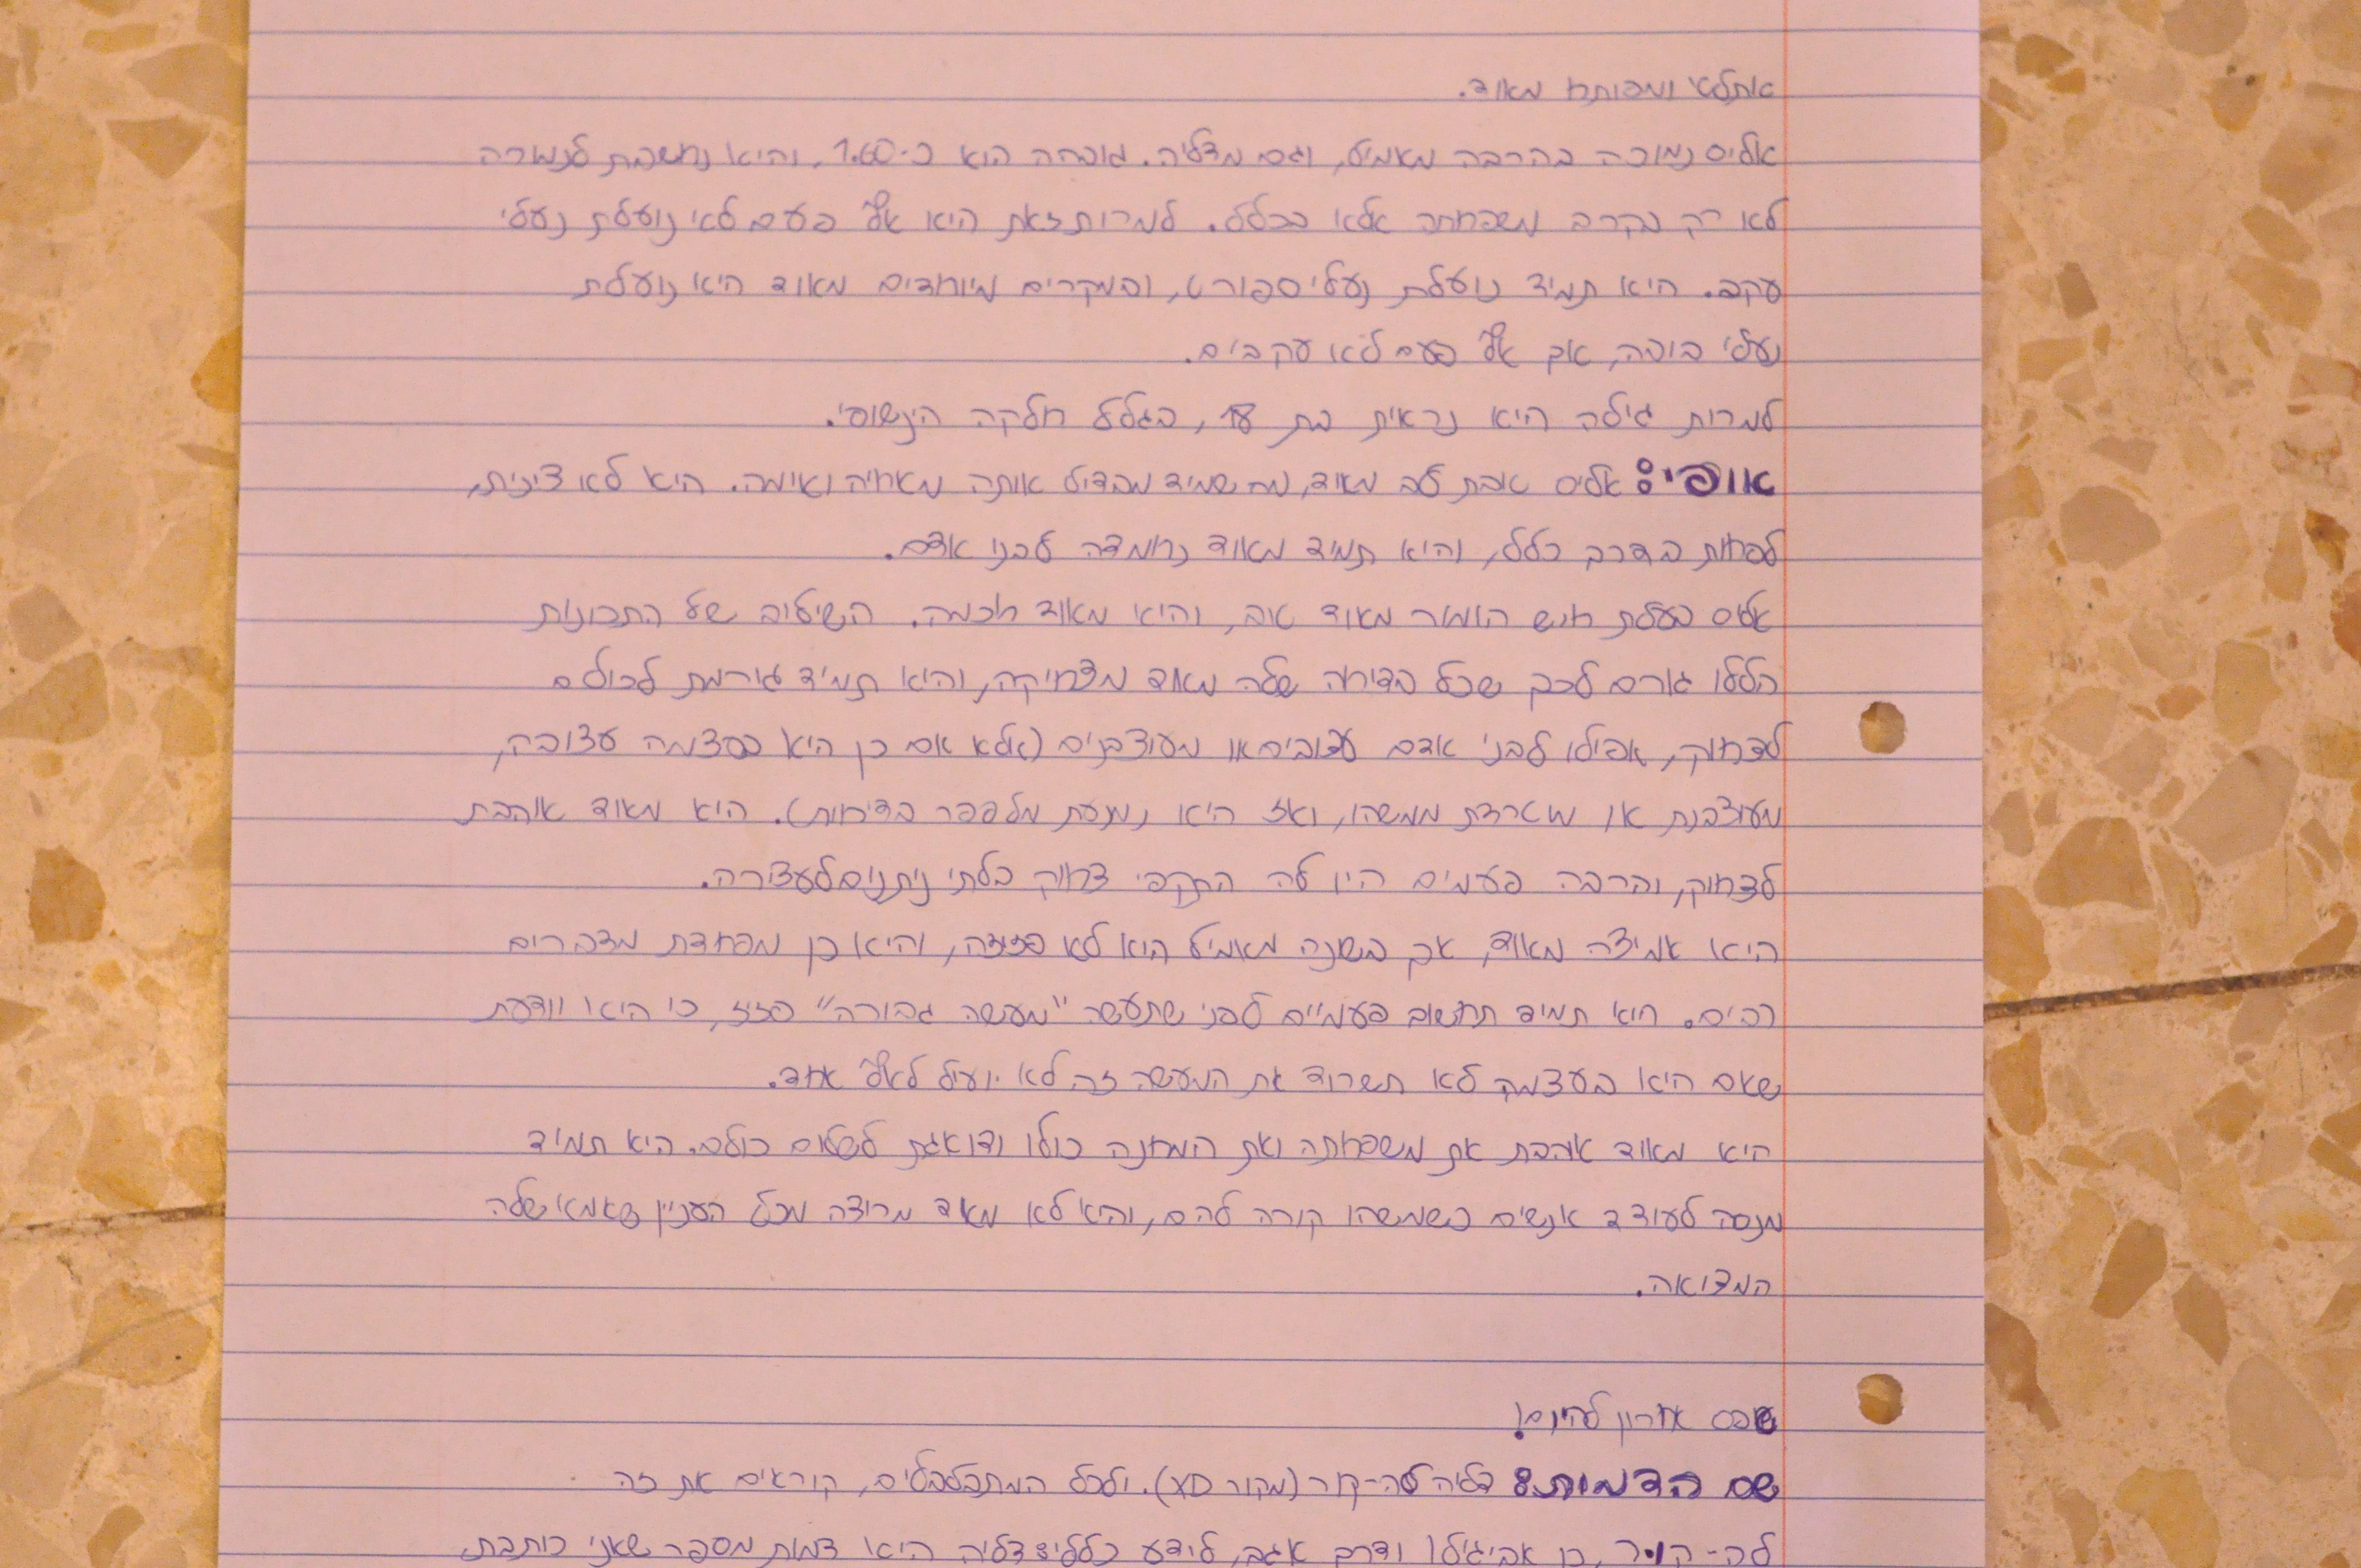 אתלטי ומפותח מאוד.
אליס נמוכה בהרבה מאמיל, וגם מדליה. גובהה הוא כ-1.60, והיא נחשבת לנמוכה
לא רק בקרב משפחתה אלא בכלל. למרות זאת היא אף פעם לא נועלת נעלי
עקב. היא תמיד נועלת נעלי ספורט, ובמקרים מיוחדים מאוד היא נועלת
נעלי בובה, אך אף פעם לא עקבים.
למרות גילה היא נראית בת 18, בגלל חלקה הינשופי.
אופי: אליס טובת לב מאוד, מה שמיד מבדיל אותה מאחיה ואימה. היא לא צינית,
לפחות בדרך כלל, והיא תמיד מאוד נחמדה לבני אדם.
אליס בעלת חוש הומור מאוד טוב, והיא מאוד חכמה. השילוב של התכונות
הללו גורם לכך שכל בדיחה שלה מאוד מצחיקה, והיא תמיד גורמת לכולם
לצחוק, אפילו לבני אדם עצובים או מעוצבנים (אלא אם כן היא בעצמה עצובה,
מעוצבנת או מוטרדת ממשהו, ואז היא נמנעת מלספר בדיחות). היא מאוד אוהבת
לצחוק, והרבה פעמים היו לה התקפי צחוק בלתי ניתנים לעצירה.
היא אמיצה מאוד, אך בשונה מאמיל היא לא פזיזה, והיא כן מפחדת מדברים
רבים. היא תמיד תחשוב פעמיים לפני שתעשה "מעשה גבורה" פזיז, כי היא יודעת
שאם היא בעצמה לא תשרוד את המעשה זה לא יועיל לאף אחד.
היא מאוד אוהבת את משפחתה ואת המחנה כולו ודואגת לשלום כולם. היא תמיד
מנסה לעודד אנשים כשמשהו קורה להם, והיא לא מאוד מרוצה מכל העניין שאמא שלה
המציאה.
טופס אחרון להיום!
שם הדמות: דליה לה-קור (מקור XD). ולכל המתבלבלים, קוראים את זה
לה-קור, כן אביגיל! ודרך אגב, לידע כללי: דליה היא דמות מספר שאני כותבת.